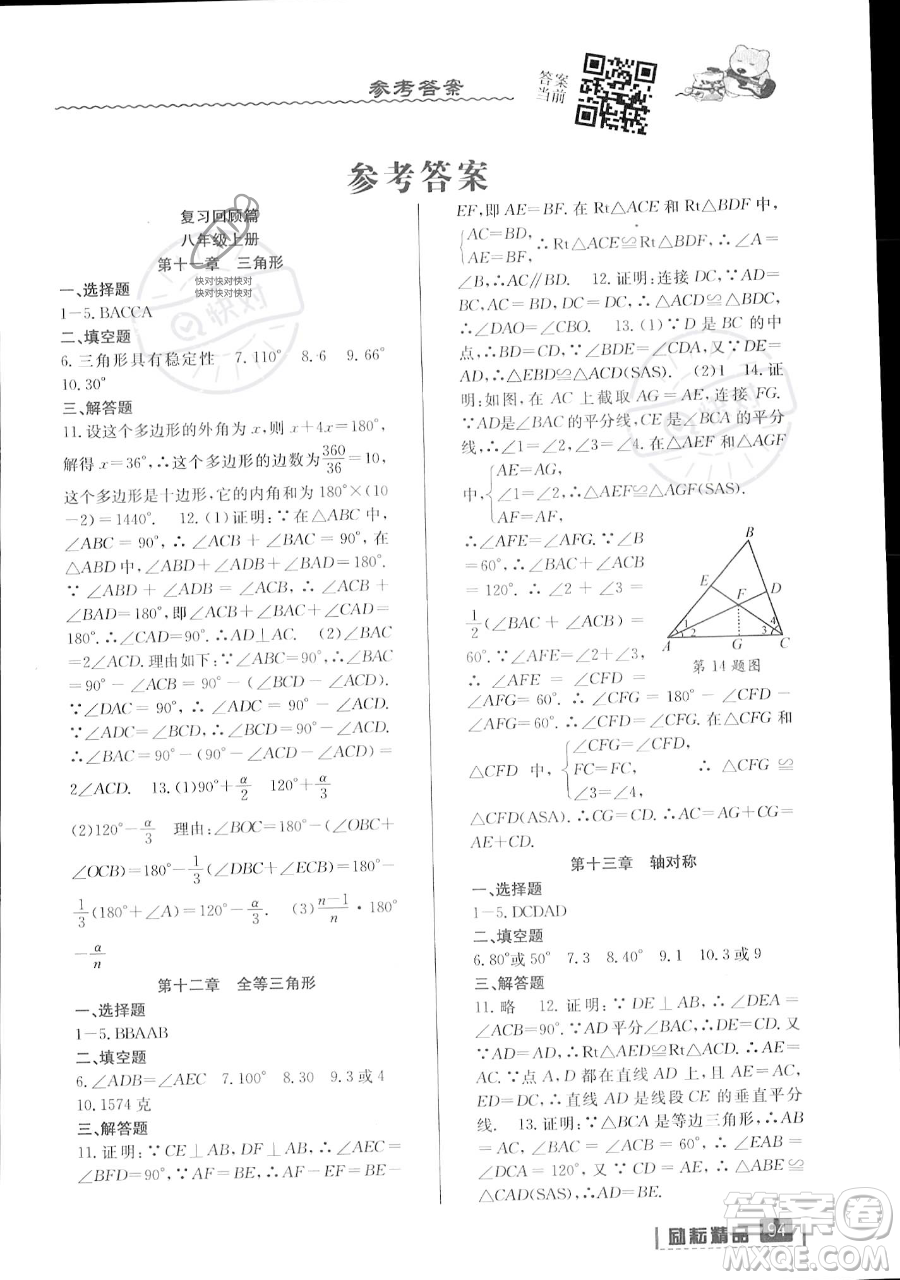 参考答案
答案
当前
参考答案
复习回顾篇
八年级上册
第十一章 三角形
快对快对快对
快对快对快对
一、选择题
1-5. BACCA
二、填空题
6. 三角形具有稳定性 7. 110° 8. 6 9. 66°
10. 30°
三、解答题
11. 设这个多边形的外角为 x,则 x+4x=180°,
解得 x=36°,∴这个多边形的边数为360/36=10,
这个多边形是十边形,它的内角和为 180°×(10
-2)=1440°. 12. (1)证明:∵在△ABC 中,
∠ABC = 90°,∴∠ACB + ∠BAC = 90°. 在
△ABD 中,∠ABD+∠ADB+∠BAD=180°.
∵∠ABD + ∠ADB = ∠ACB,∴∠ACB +
∠BAD=180°,即∠ACB+∠BAC+∠CAD=
180°. ∴∠CAD=90°. ∴AD⊥AC. (2)∠BAC
=2∠ACD. 理由如下:∵∠BAC + ∠ACB
=90°,∴∠BAC = 90° - ∠ACB. 由(1)得
∵∠DAC = 90°,∴∠ADC = 90° - ∠ACD.
∵∠ADC = ∠BCD,∴∠BCD=90°-∠ACD.
∴∠BAC = 90° - (90° - ∠ACD - ∠ACD)
=2∠ACD. 13. (1)90°+α/2 120°+α/3
(2)120°-α/3 理由:∠BOC=180°-(∠OBC+
∠OCB)=180°-1/3(∠DBC+∠ECB)=180°-
1/3(180°+∠A)=120°-α/3. (3)n-1/n·180°
-α/n
第十二章 全等三角形
一、选择题
1-5. BBAAB
二、填空题
6. ∠ADB=∠AEC 7. 100° 8. 30 9. 3 或 4
10. 1574 克
三、解答题
11. 证明:∵CE⊥AB,DF⊥AB,∴∠AEC=
∠BFD=90°. ∵AF=BE,∴AF-EF=BE-
EF,即 AE=BF. 在 Rt△ACE 和 Rt△BDF 中,
{AC=BD,
AE=BF. ∴Rt△ACE≌Rt△BDF,∴∠A=
∠B,∴AC∥BD. 12. 证明:连接 DC,∵AD=
BC,AC=BD,DC=CD,∴△ADC≌△BCD,
∴∠DAO=∠CBO. 13. (1)∵D 是 BC 的中
点,∴BD=CD. ∵∠ADB=∠CDE,AD=
ED,∴△ABD≌△ECD(SAS). (2)1 14. 证
明:如图,在 AC 上截取 AG=AE,连接 FG.
∵AD是∠BAC 的平分线,CE是∠BCA 的平分
线,∴∠1=∠2,∠3=∠4. 在△AEF 和△AGF
中,{AE=AG,
∠1=∠2, ∴△AEF≌△AGF(SAS).
AF=AF.
∴∠AFE=∠AFG. ∵∠B=
60°,∴∠BAC + ∠ACB
=120°. ∴∠2+∠3=
1/2(∠BAC + ∠ACB) =
60°. ∵∠AFE=∠2+∠3,
∴∠AFE = ∠CFD =
∠AFG=60°. ∴∠CFG = 180° - ∠CFD -
∠AFG=60°. ∴∠CFD=∠CFG. 在△CFG 和
△CFD 中,{∠CFG=∠CFD,
FC=FC, ∴△CFG≌
∠3=∠4,
△CFD(ASA). ∴CG=CD. ∴AC=AG+CG=
AE+CD.
A B C D E F G 1 2 3 4
第 14 题图
第十三章 轴对称
一、选择题
1-5. DCDAD
二、填空题
6. 80°或50° 7. 5 8. 40° 9. 1 10. 3 或 9
三、解答题
11. 略 12. 证明:∵DE⊥AB,∴∠DEA=
∠ACB=90°. ∵AD平分∠BAC,∴DE=DC. 又
∵AD=AD,∴Rt△AED≌Rt△ACD. ∴AE=
AC,∴A、D 都在直线 AD 上,∴A、D 都在线段 CE 的垂直平分
线上. 13. 证明:∵△BCA 是等边三角形,∴AB
=AC,∠BAC=∠BCA=60°,∴∠EAB=
∠DCA=120°,又∵AE=CD,∴△ABE≌
△CAD(SAS),∴AD=BE.
励耘精品 94
答案卷